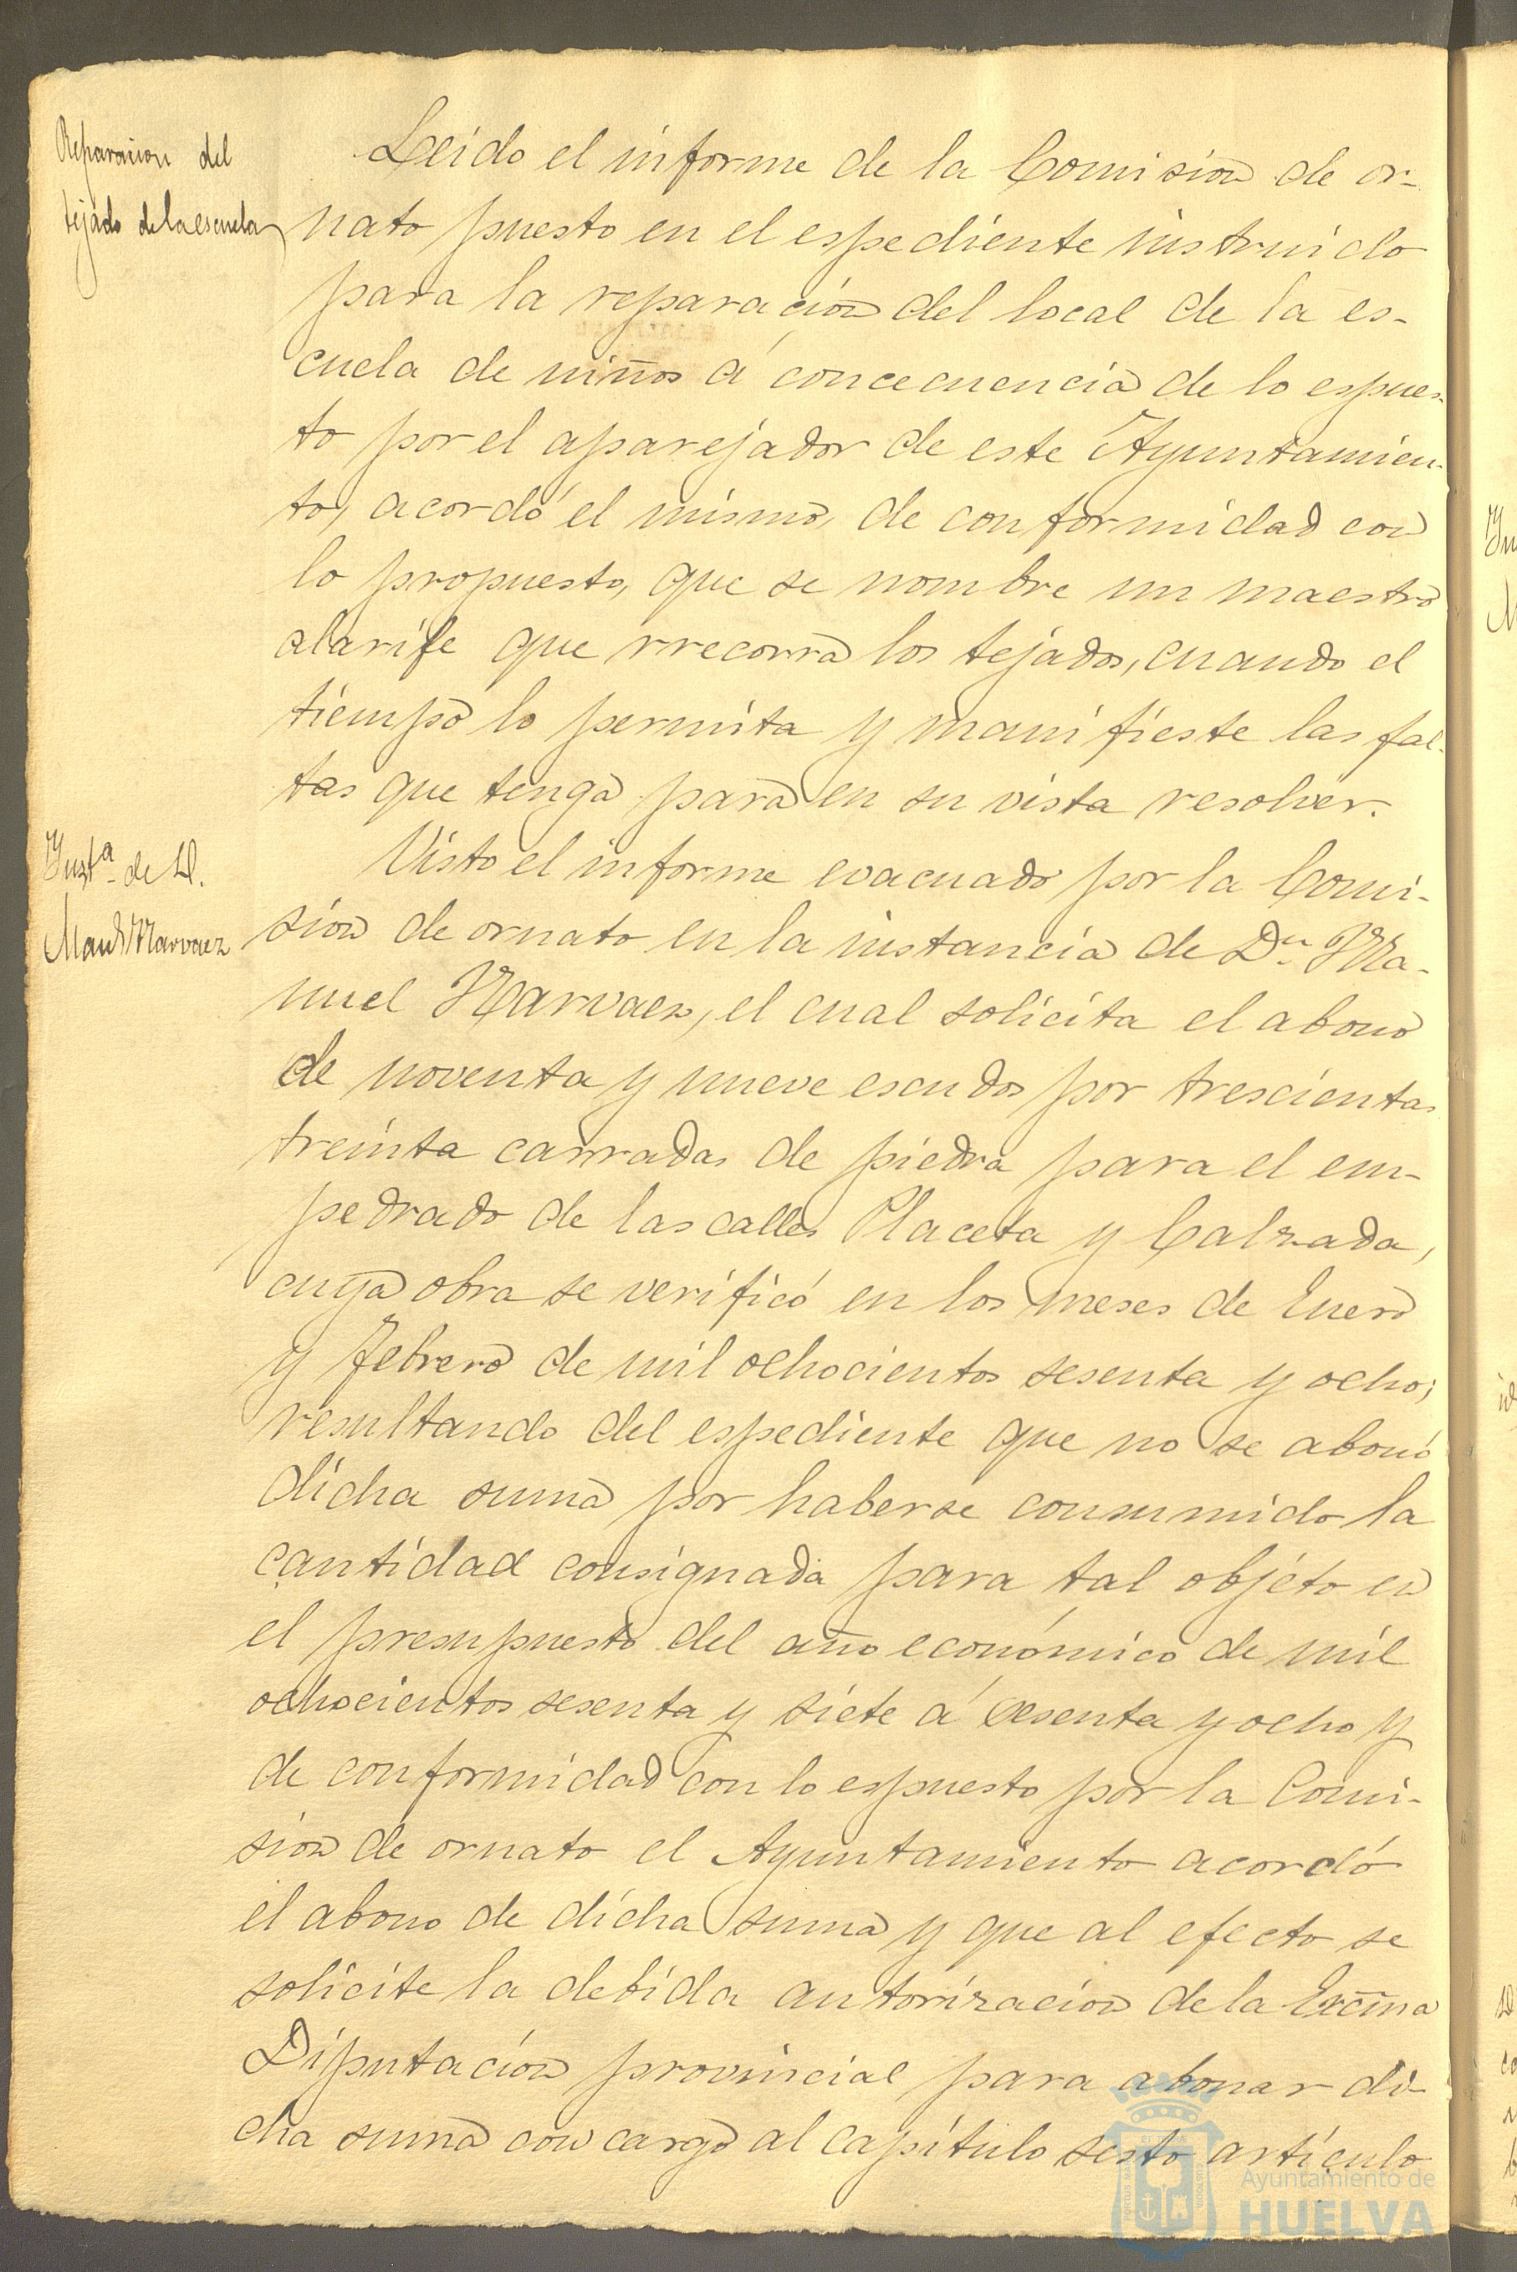 Reparacion del
tejado de la escuela
Leido el informe de la Comision de or-
nato puesto en el espediente instruido
para la reparacion del local de la es-
cuela de niños á concecuencia de lo espues-
to por el aparejador de este Ayuntamien-
to, acordó el mismo, de conformidad con
lo propuesto, que se nombre un maestro
alarife que rrecorra los tejados, cuando el
tiempo lo permita y manifieste las fal-
tas que tenga para en su vista resolver.
Insta. de D.
Manl. Narvaez
Visto el informe evacuado por la Comi-
sion de ornato en la instancia de Dn. Ma-
nuel Narvaez, el cual solicita el abono
de noventa y nueve escudos por trescientas
treinta carradas de piedra para el em-
pedrado de las calles Placeta y Calzada,
cuya obra se verificó en los meses de Enero
y Febrero de mil ochocientos sesenta y ocho;
resultando del espediente que no se abonó
dicha suma por haberse consumido la
cantidad consignada para tal objéto en
el presupuesto del año económico de mil
ochocientos sesenta y siete á sesenta y ocho y
de conformidad con lo espuesto por la Comi-
sion de ornato el Ayuntamiento acordó
el abono de dicha suma y que al efecto se
solicite la debida autorizacion de la Excma
Diputacion provincial para abonar di-
cha suma con cargo al capítulo sesto artículo
Ayuntamiento de
HUELVA